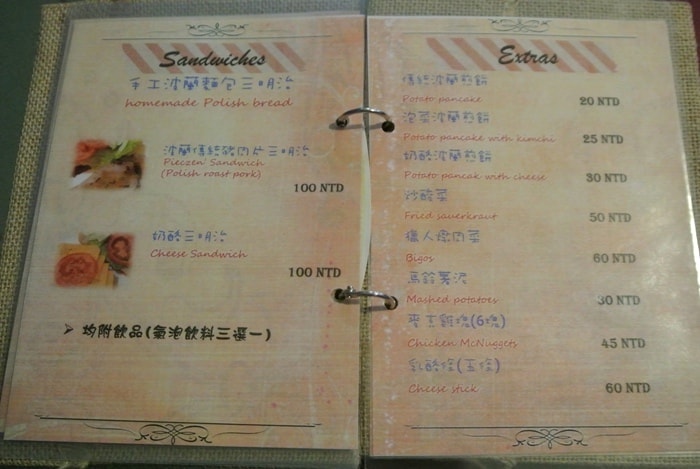 Sandwiches
手工波蘭麵包三明治
homemade Polish bread
波蘭傳統豬肉片三明治
Pieczen' Sandwich
(Polish roast pork)
100 NTD
奶酪三明治
Cheese Sandwich
100 NTD
均附飲品(氣泡飲料三選一)
Extras
傳統波蘭煎餅
Potato pancake 20 NTD
泡菜波蘭煎餅
Potato pancake with kimchi 25 NTD
奶酪波蘭煎餅
Potato pancak with cheese 30 NTD
炒酸菜
Fried sauerkraut 50 NTD
獵人燉肉菜
Bigos 60 NTD
馬鈴薯泥
Mashed potatoes 30 NTD
麥克雞塊(6塊)
Chicken McNuggets 45 NTD
乳酪條(五條)
Cheese stick 60 NTD